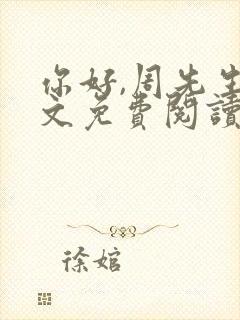 你好,周先生
文免費閱讀
徐婠